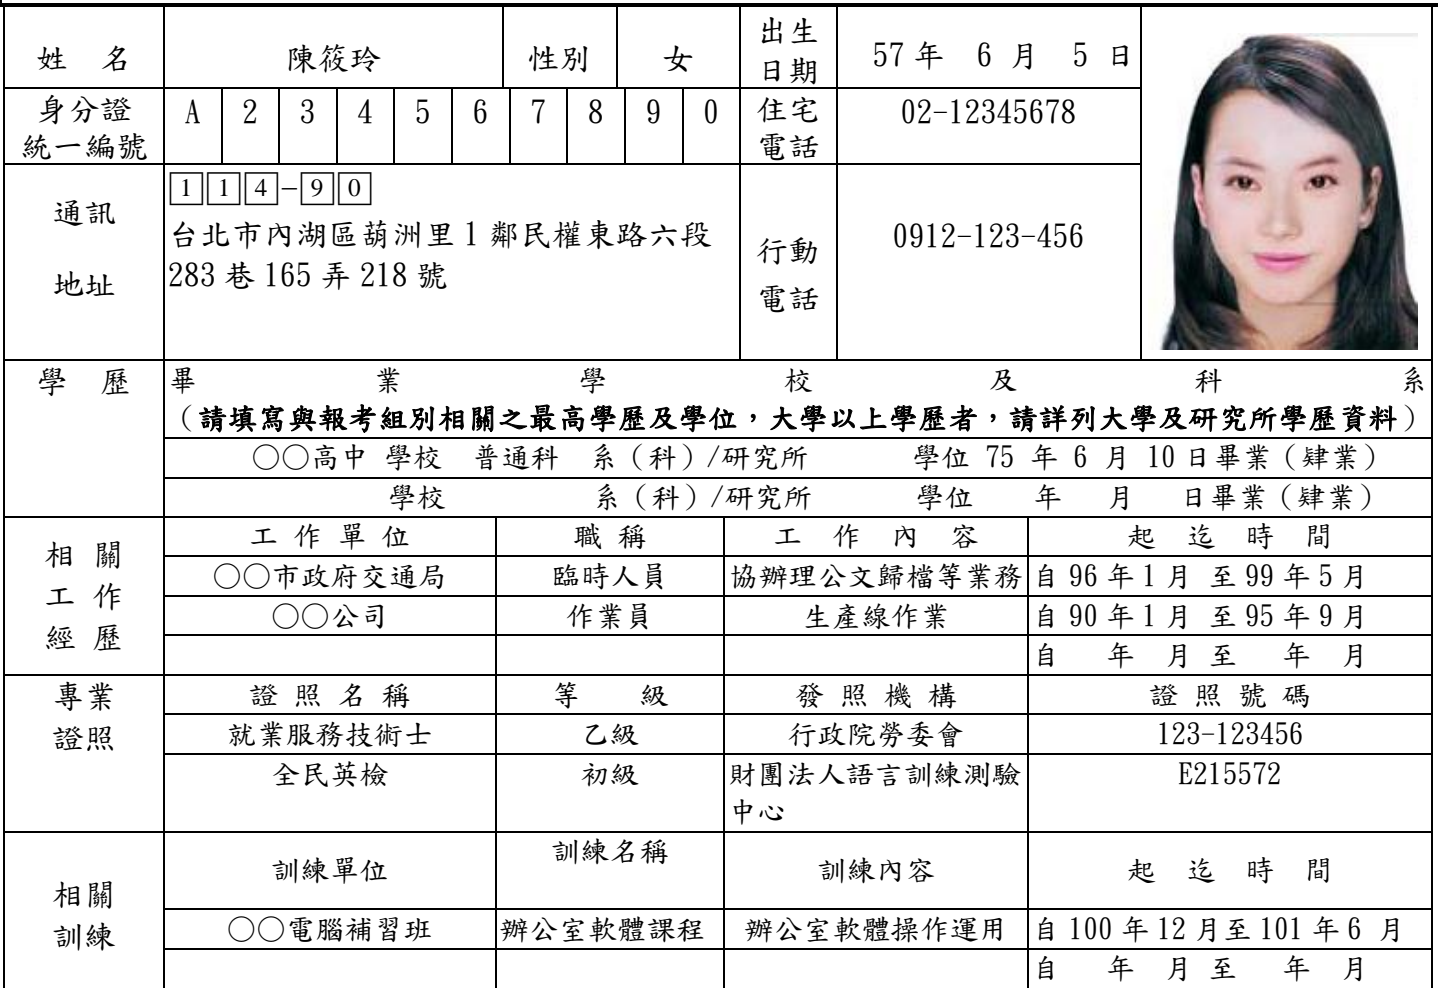 姓 名 陳筱玲 性別 女 出生日期 57年 6月 5日
身分證統一編號 A 2 3 4 5 6 7 8 9 0 住宅電話 02-12345678
通訊地址 114-90
台北市內湖區葫洲里1鄰民權東路六段
283巷165弄218號
行動電話 0912-123-456
學 歷 畢 業 學 校 及 科 系
（請填寫與報考組別相關之最高學歷及學位，大學以上學歷者，請詳列大學及研究所學歷資料）
○○高中 學校 普通科 系（科）/研究所 學位 75 年 6 月 10日畢業（肄業）
學校 系（科）/研究所 學位 年 月 日畢業（肄業）
相關工作經歷
工作單位 職稱 工作內容 起迄時間
○○市政府交通局 臨時人員 協辦理公文歸檔等業務 自96年1月 至99年5月
○○公司 作業員 生產線作業 自90年1月 至95年9月
自 年 月至 年 月
專業證照
證照名稱 等級 發照機構 證照號碼
就業服務技術士 乙級 行政院勞委會 123-123456
全民英檢 初級 財團法人語言訓練測驗中心 E215572
相關訓練
訓練單位 訓練名稱 訓練內容 起迄時間
○○電腦補習班 辦公室軟體課程 辦公室軟體操作運用 自100年12月至101年6 月
自 年 月至 年 月